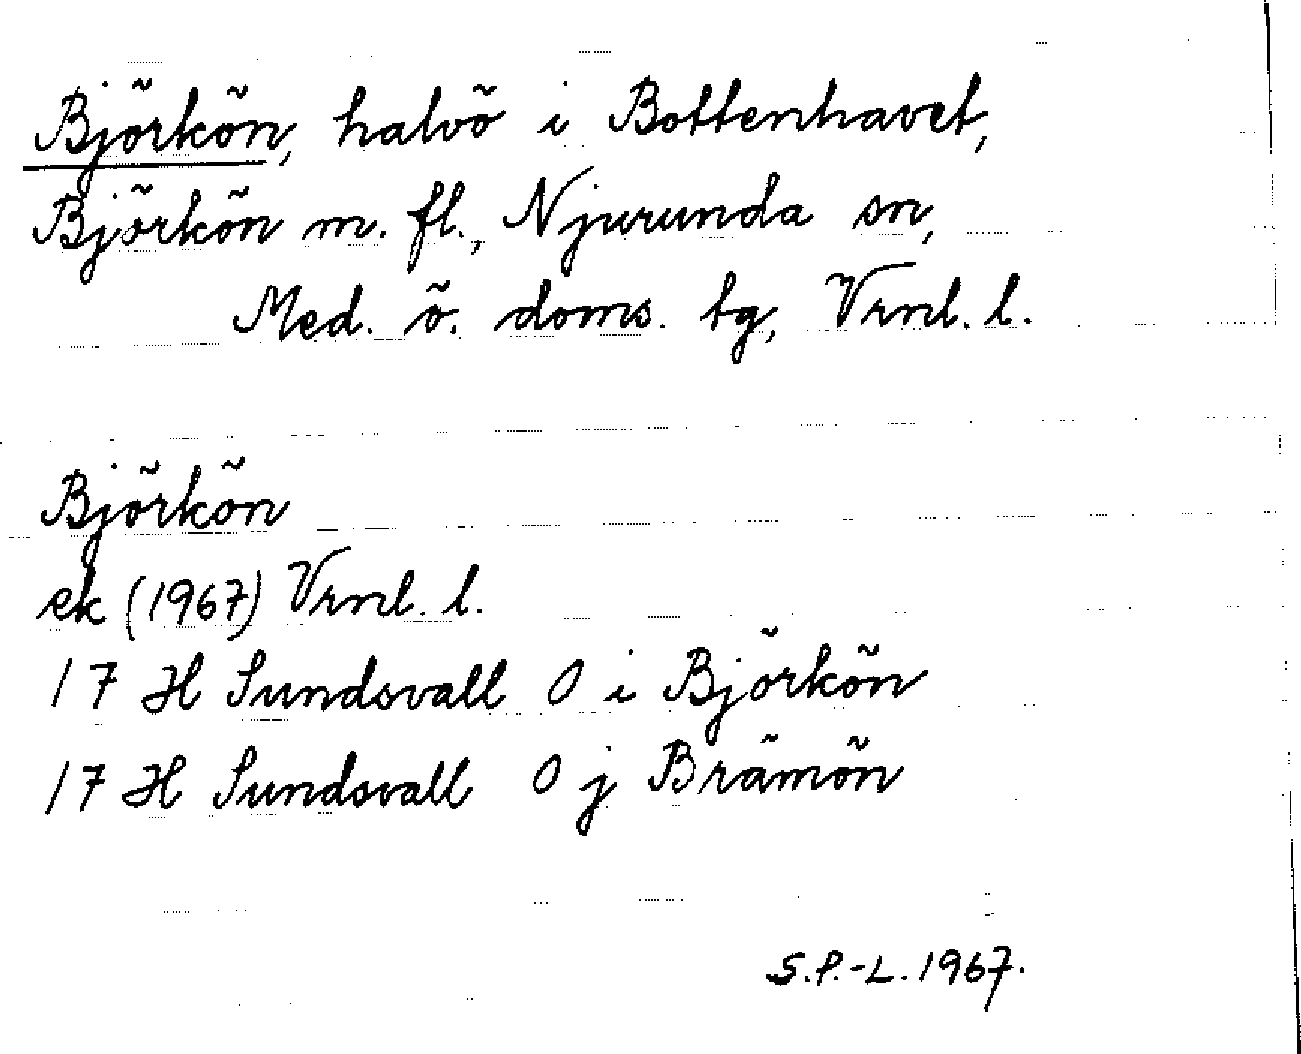 Björkön, halvö i Bottenhavet,
Björkön m. fl., Njurunda sn,
Med. ö. doms. tg, Vrnl. l.
Björkön
ek (1967) Vrnl. l.
17 H Sundsvall 0 i Björkön
17 H Sundsvall 0 j Brämön
S.P.-L. 1967.